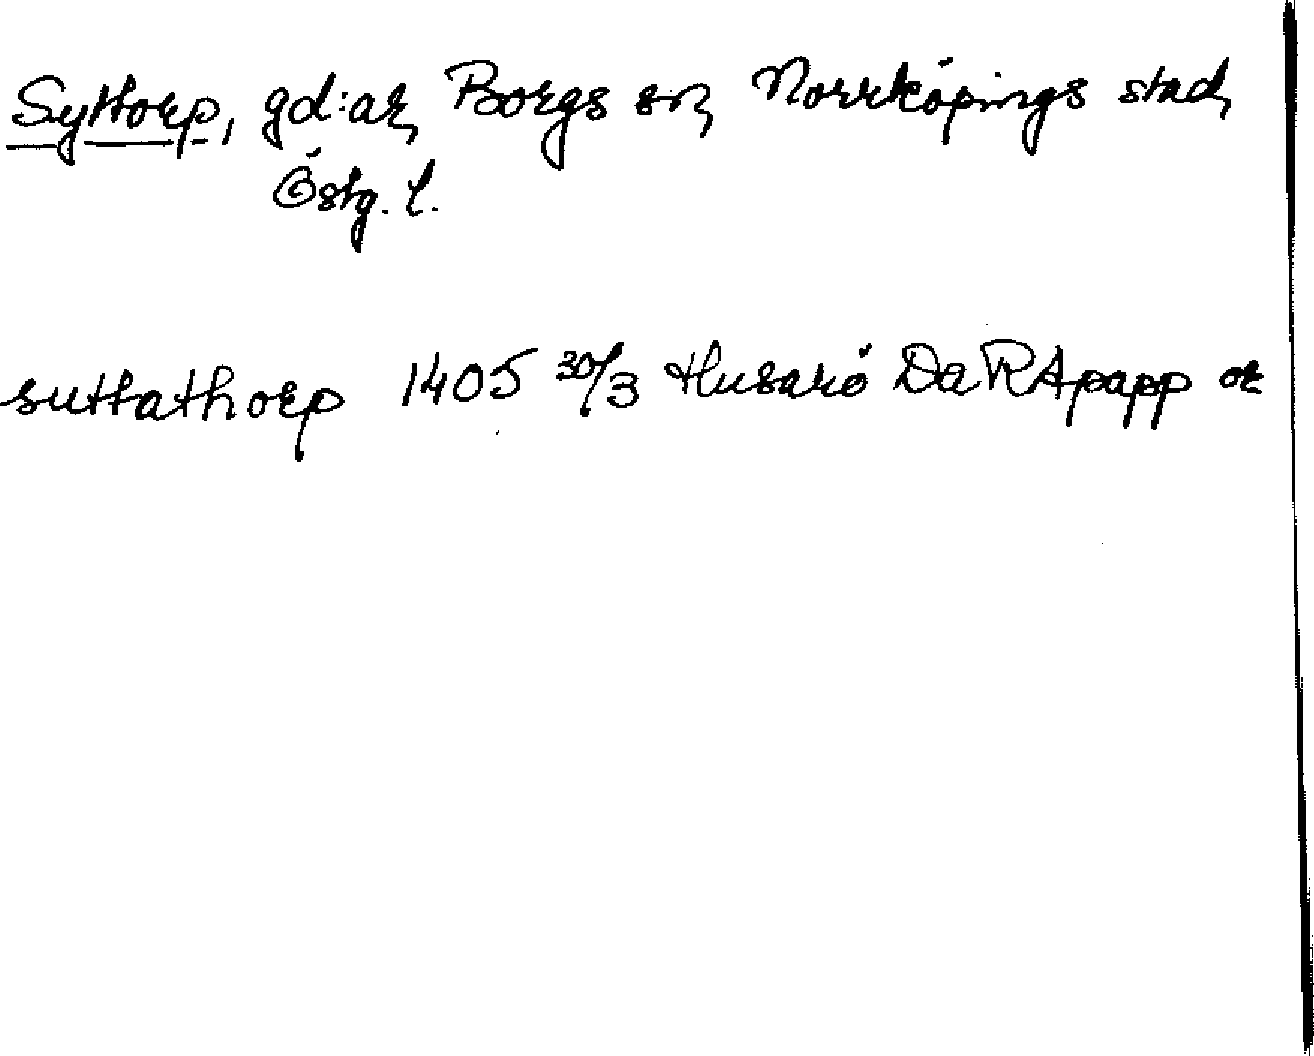 Syttorp, gd:ar, Borgs sn, Norrköpings stad,
Östg. l.
suttathorp 1405 30/3 Husarö DaRApapp or